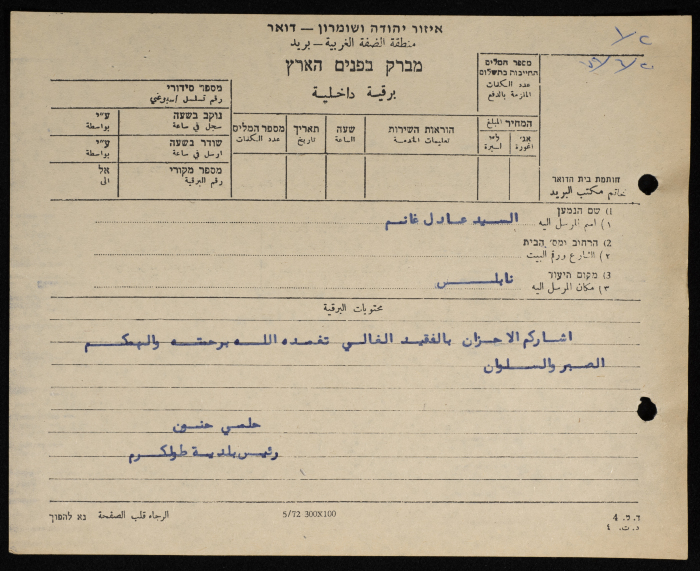 איזור יהודה ושומרון – דואר
منطقة الضفة الغربية – بريد
מברק בפנים הארץ
برقية داخلية
מספר המלים
החייבות בתשלום
عدد الكلمات
الملزمة بالدفع
המחיר المبلغ
אג׳ ל״י
اغورة ليرة
הוראות השירות
تعليمات الخدمة
שעה
الساعة
תאריך
تاريخ
מספר המלים
عدد الكلمات
מספר סידורי
رقم تسلسل اسبوعي
נוקב בשעה ע״י
سجل في ساعة بواسطة
שודר בשעה ע״י
ارسل في ساعة بواسطة
מספר מקורי אל
رقم البرقية الى
חותמת בית הדואר
خاتم مكتب البريد
1) שם הנמען
١) اسم المرسل اليه السيد عادل غانم
2) הרחוב ומס׳ הבית
٢) الشارع ورقم البيت
3) מקום היעוד
٣) مكان المرسل اليه نابلس
محتويات البرقية
اشاركم الاحزان بالفقيد الغالي تغمده الله برحمته والهمكم
الصبر والسلوان
حلمي حنون
رئيس بلدية طولكرم
ד. ל. 4
د. ت. ٤
5/72 300X100
الرجاء قلب الصفحة נא להפוך